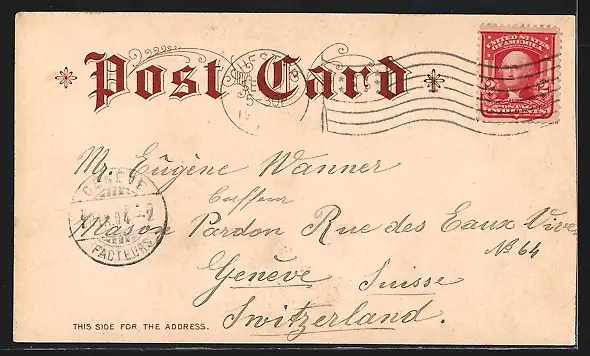 Post Card
UNITED STATES
OF AMERICA
2 2
POSTAGE
TWO CENTS
Mr. Eugène Wanner
Coiffeur
Maison Pardon Rue des Eaux Vives
No 64
Genève Suisse
Switzerland.
GENÈVE
04
FACTEURS
THIS SIDE FOR THE ADDRESS.